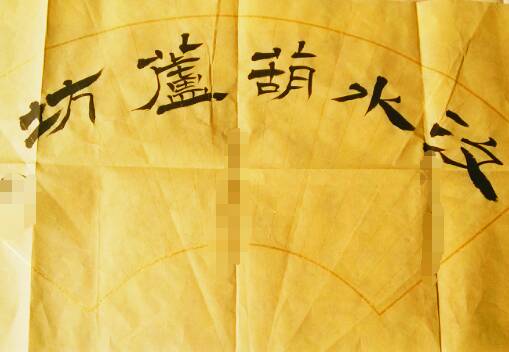 水葫蘆坊